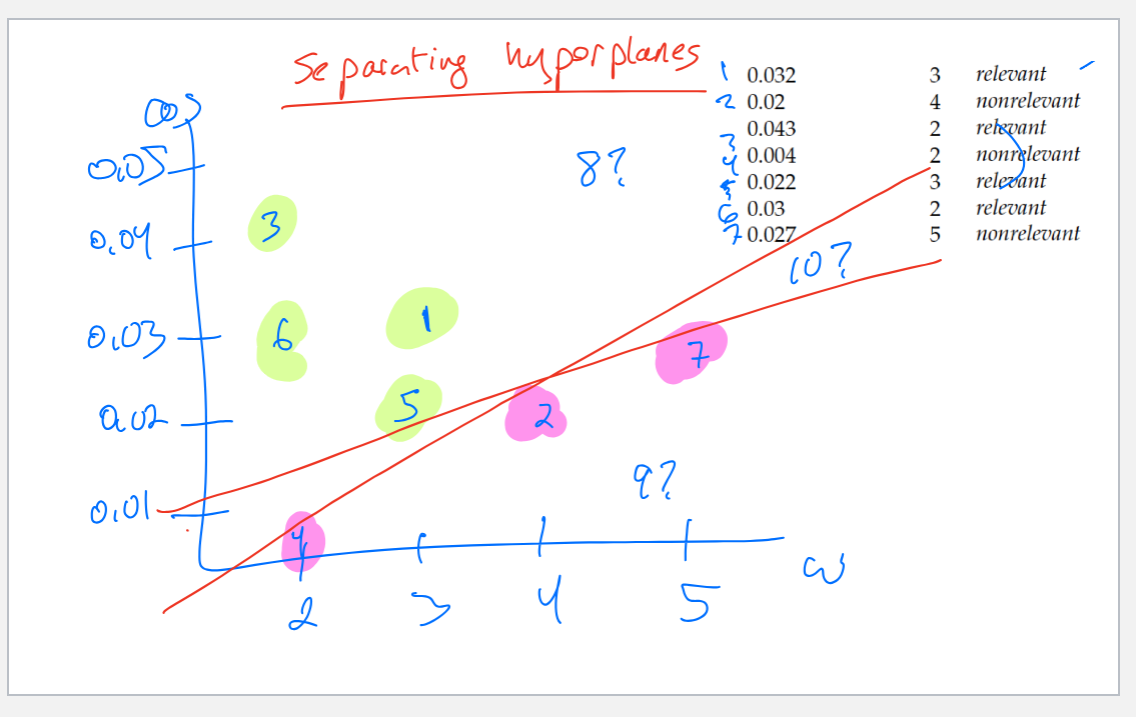 Separating hyporplanes
1 0.032 3 relevant
2 0.02 4 nonrelevant
3 0.043 2 relevant
4 0.004 2 nonrelevant
5 0.022 3 relevant
6 0.03 2 relevant
7 0.027 5 nonrelevant
cos
0,05
8?
0,04
3
10?
0,03
6
1
7
0,02
5
2
9?
0,01
4
ω
2 3 4 5